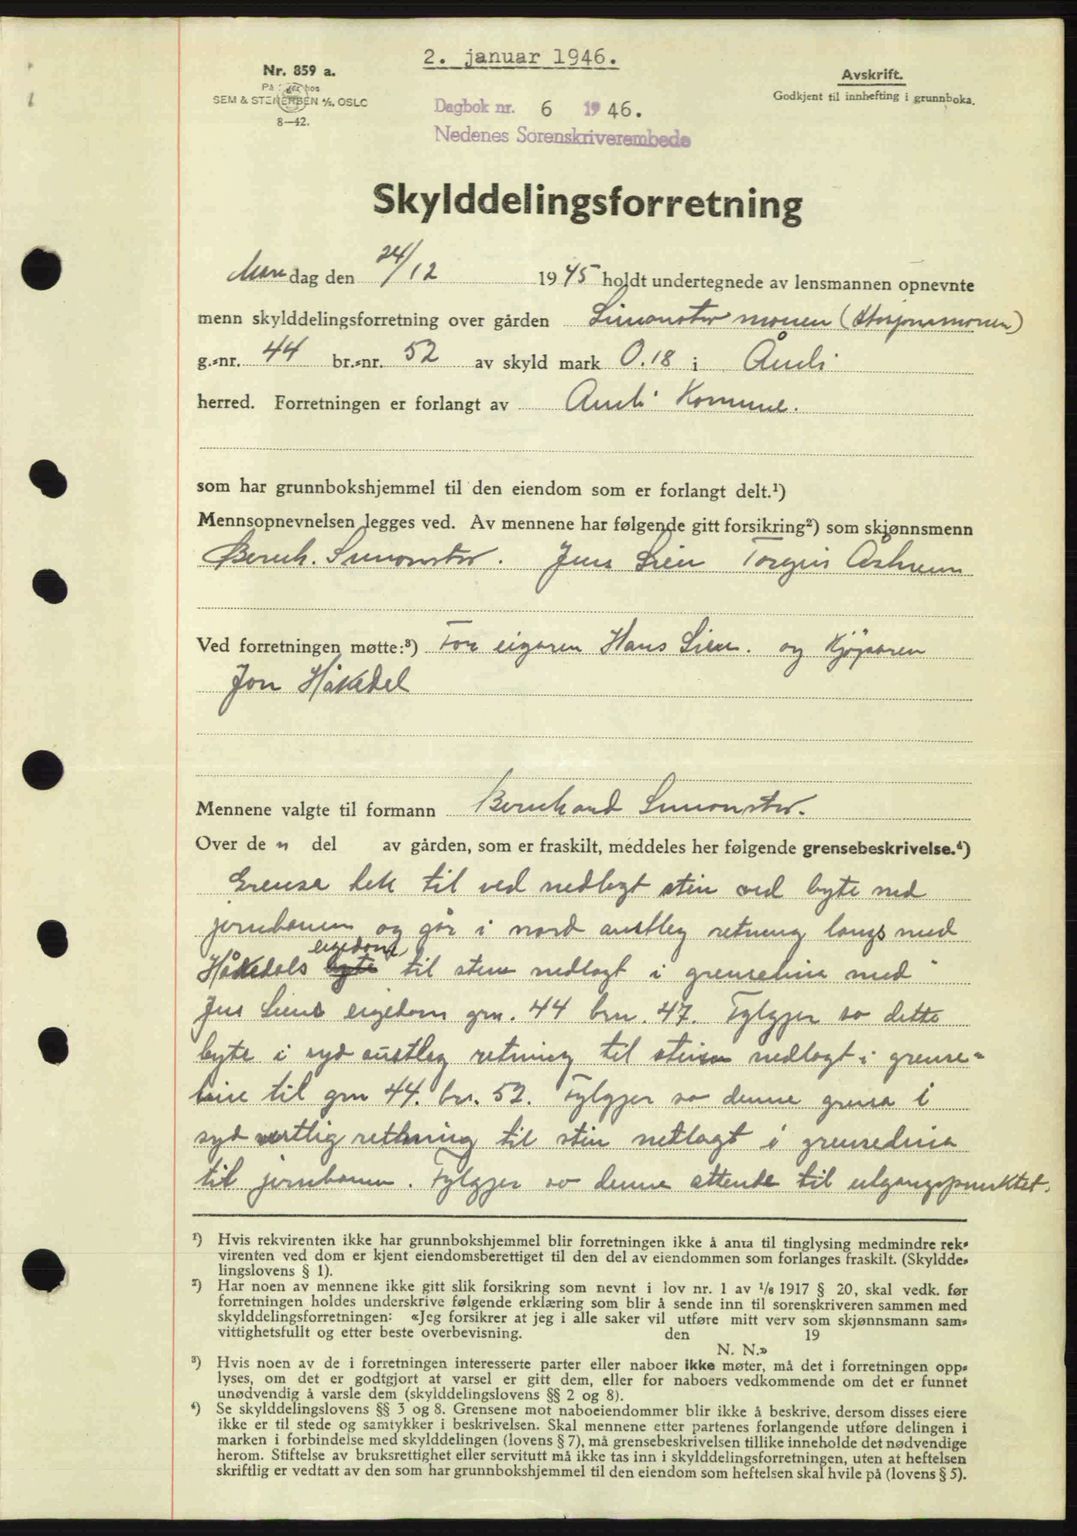 2. januar 1946.
Nr. 859 a.
På lager hos
SEM & STENERSEN A/S, OSLO
8—42.
Avskrift.
Godkjent til innhefting i grunnboka.
Dagbok nr. 6 1946.
Nedenes Sorenskriverembede
Skylddelingsforretning
Mandag den 24/12 1945 holdt undertegnede av lensmannen opnevnte
menn skylddelingsforretning over gården Simonstadmonen (Stasjonsmonen)
g.-nr. 44 br.-nr. 52 av skyld mark 0.18 i Åmli
herred. Forretningen er forlangt av Åmli Kommune.
som har grunnbokshjemmel til den eiendom som er forlangt delt.¹)
Mennsopnevnelsen legges ved. Av mennene har følgende gitt forsikring²) som skjønnsmenn
Bernh. Simonstad. Jens Lien Torgeir Askeum
Ved forretningen møtte:³) For eigaren Hans Lien. og Kjøparen
Jon Håkedal
Mennene valgte til formann Bernhard Simonstad.
Over de n del av gården, som er fraskilt, meddeles her følgende grensebeskrivelse.⁴)
Grensa tek til ved nedlagt stein ved byte med
jernbanen og går i nord austleg retning langs med
Håkedals eigedom til stein nedlagt i grenselina med
Jens Liens eigedom grn. 44 brn. 47. Fylgjer so dette
byte i syd austleg retning til stein nedlagt i grense-
line til grn 44. brn. 52. Fylgjer so denne grensa i
syd vestlig retning til stein netlagt i grenselina
til jernbanen. Fylgjer so denne attende til utgangspunktet.
¹) Hvis rekvirenten ikke har grunnbokshjemmel blir forretningen ikke å anta til tinglysing medmindre rek-
virenten ved dom er kjent eiendomsberettiget til den del av eiendommen som forlanges fraskilt. (Skyldde-
lingslovens § 1).
²) Har noen av mennene ikke gitt slik forsikring som nevnt i lov nr. 1 av ¹/₆ 1917 § 20, skal vedk. før
forretningen holdes underskrive følgende erklæring som blir å sende inn til sorenskriveren sammen med
skylddelingsforretningen: «Jeg forsikrer at jeg i alle saker vil utføre mitt verv som skjønnsmann sam-
vittighetsfullt og etter beste overbevisning. den 19
N. N.»
³) Hvis noen av de i forretningen interesserte parter eller naboer ikke møter, må det i forretningen opp-
lyses, om det er godtgjort at varsel er gitt dem, eller for naboers vedkommende om det er funnet
unødvendig å varsle dem (skylddelingslovens §§ 2 og 8).
⁴) Se skylddelingslovens §§ 3 og 8. Grensene mot naboeiendommer blir ikke å beskrive, dersom disses eiere
ikke er til stede og samtykker i beskrivelsen. Skal mennene etter partenes forlangende utføre delingen i
marken i forbindelse med skylddelingen (lovens § 7), må grensebeskrivelsen tillike inneholde det nødvendige
herom. Stiftelse av bruksrettighet eller servitutt må ikke tas inn i skylddelingsforretningen, uten at heftelsen
skriftlig er vedtatt av den som har grunnbokshjemmel til den eiendom som heftelsen skal hvile på (lovens § 5).